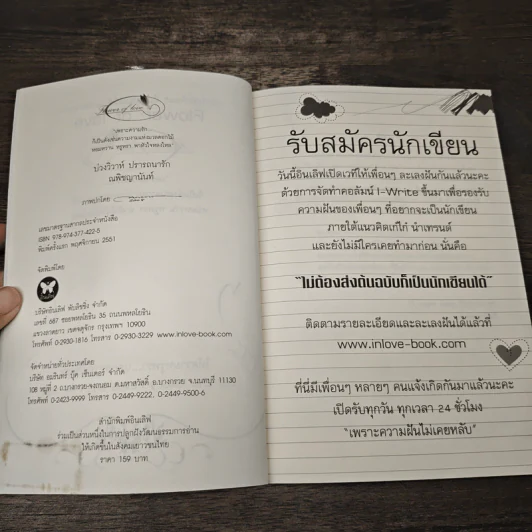 flower of love
"เพราะความรัก
ก็เป็นดั่งเช่นความงามแห่งมวลดอกไม้
หอมหวาน หรูหรา พาหัวใจหลงใหล"
บ่วงวิวาห์ ปรารถนารัก
ณพิชญานันท์
ภาพปกโดย
เลขมาตรฐานสากลประจำหนังสือ
ISBN 978-974-377-422-5
พิมพ์ครั้งแรก พฤศจิกายน 2551
จัดพิมพ์โดย
บริษัทอินเลิฟ พับลิชชิ่ง จำกัด
เลขที่ 687 ซอยพหลโยธิน 35 ถนนพหลโยธิน
แขวงลาดยาว เขตจตุจักร กรุงเทพฯ 10900
โทรศัพท์ 0-2930-1816 โทรสาร 0-2930-3229 www.inlove-book.com
จัดจำหน่ายทั่วประเทศโดย
บริษัท อมรินทร์ บุ๊ค เซ็นเตอร์ จำกัด
108 หมู่ที่ 2 ถ.บางกรวย-จงถนอม ต.มหาสวัสดิ์ อ.บางกรวย จ.นนทบุรี 11130
โทรศัพท์ 0-2423-9999 โทรสาร 0-2449-9222, 0-2449-9500-6
สำนักพิมพ์อินเลิฟ
ร่วมเป็นส่วนหนึ่งในการปลูกฝังวัฒนธรรมการอ่าน
ให้เกิดขึ้นในสังคมเยาวชนไทย
ราคา 159 บาท
รับสมัครนักเขียน
วันนี้อินเลิฟเปิดเวทีให้เพื่อนๆ ละเลงฝันกันแล้วนะคะ
ด้วยการจัดทำคอลัมน์ I-Write ขึ้นมาเพื่อรองรับ
ความฝันของเพื่อนๆ ที่อยากจะเป็นนักเขียน
ภายใต้แนวคิดเก๋ไก๋ นำเทรนด์
และยังไม่มีใครเคยทำมาก่อน นั่นคือ
"ไม่ต้องส่งต้นฉบับก็เป็นนักเขียนได้"
ติดตามรายละเอียดและละเลงฝันได้แล้วที่
www.inlove-book.com
ที่นี่มีเพื่อนๆ หลายๆ คนแจ้งเกิดกันมาแล้วนะคะ
เปิดรับทุกวัน ทุกเวลา 24 ชั่วโมง
"เพราะความฝันไม่เคยหลับ"